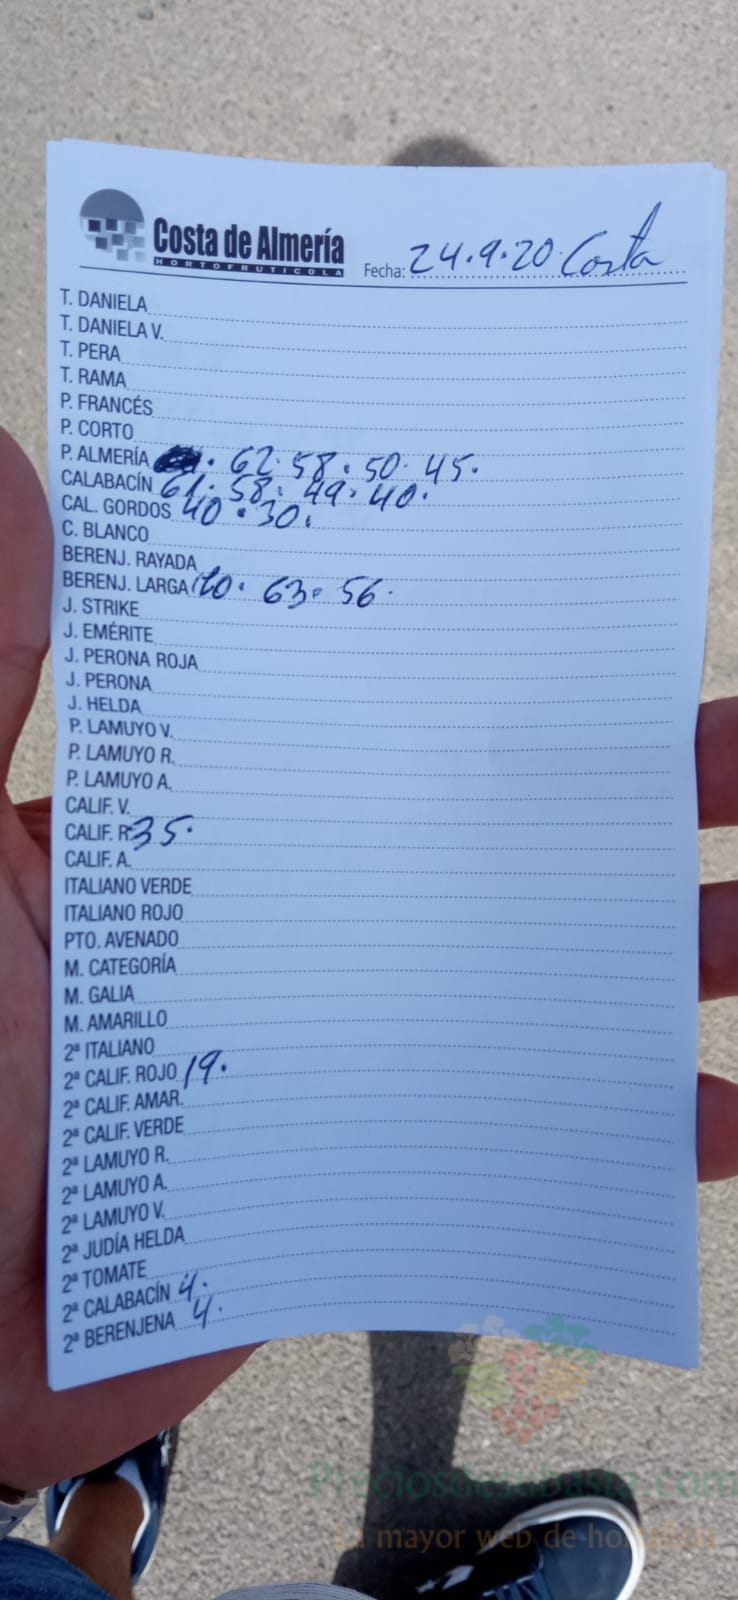 Costa de Almería
HORTOFRUTICOLA
Fecha: 24.9.20. Costa
T. DANIELA
T. DANIELA V.
T. PERA
T. RAMA
P. FRANCÉS
P. CORTO
P. ALMERÍA . 62. 58. 50. 45.
CALABACÍN 61. 58. 49. 40.
CAL. GORDOS 40. 30.
C. BLANCO
BERENJ. RAYADA
BERENJ. LARGA 63. 56.
J. STRIKE
J. EMÉRITE
J. PERONA ROJA
J. PERONA
J. HELDA
P. LAMUYO V.
P. LAMUYO R.
P. LAMUYO A.
CALIF. V.
CALIF. R. 35.
CALIF. A.
ITALIANO VERDE
ITALIANO ROJO
PTO. AVENADO
M. CATEGORÍA
M. GALIA
M. AMARILLO
2ª ITALIANO
2ª CALIF. ROJO 19.
2ª CALIF. AMAR.
2ª CALIF. VERDE
2ª LAMUYO R.
2ª LAMUYO A.
2ª LAMUYO V.
2ª JUDÍA HELDA
2ª TOMATE
2ª CALABACÍN 4.
2ª BERENJENA 4.
Preciosdesubasta.com
La mayor web de hortalizas